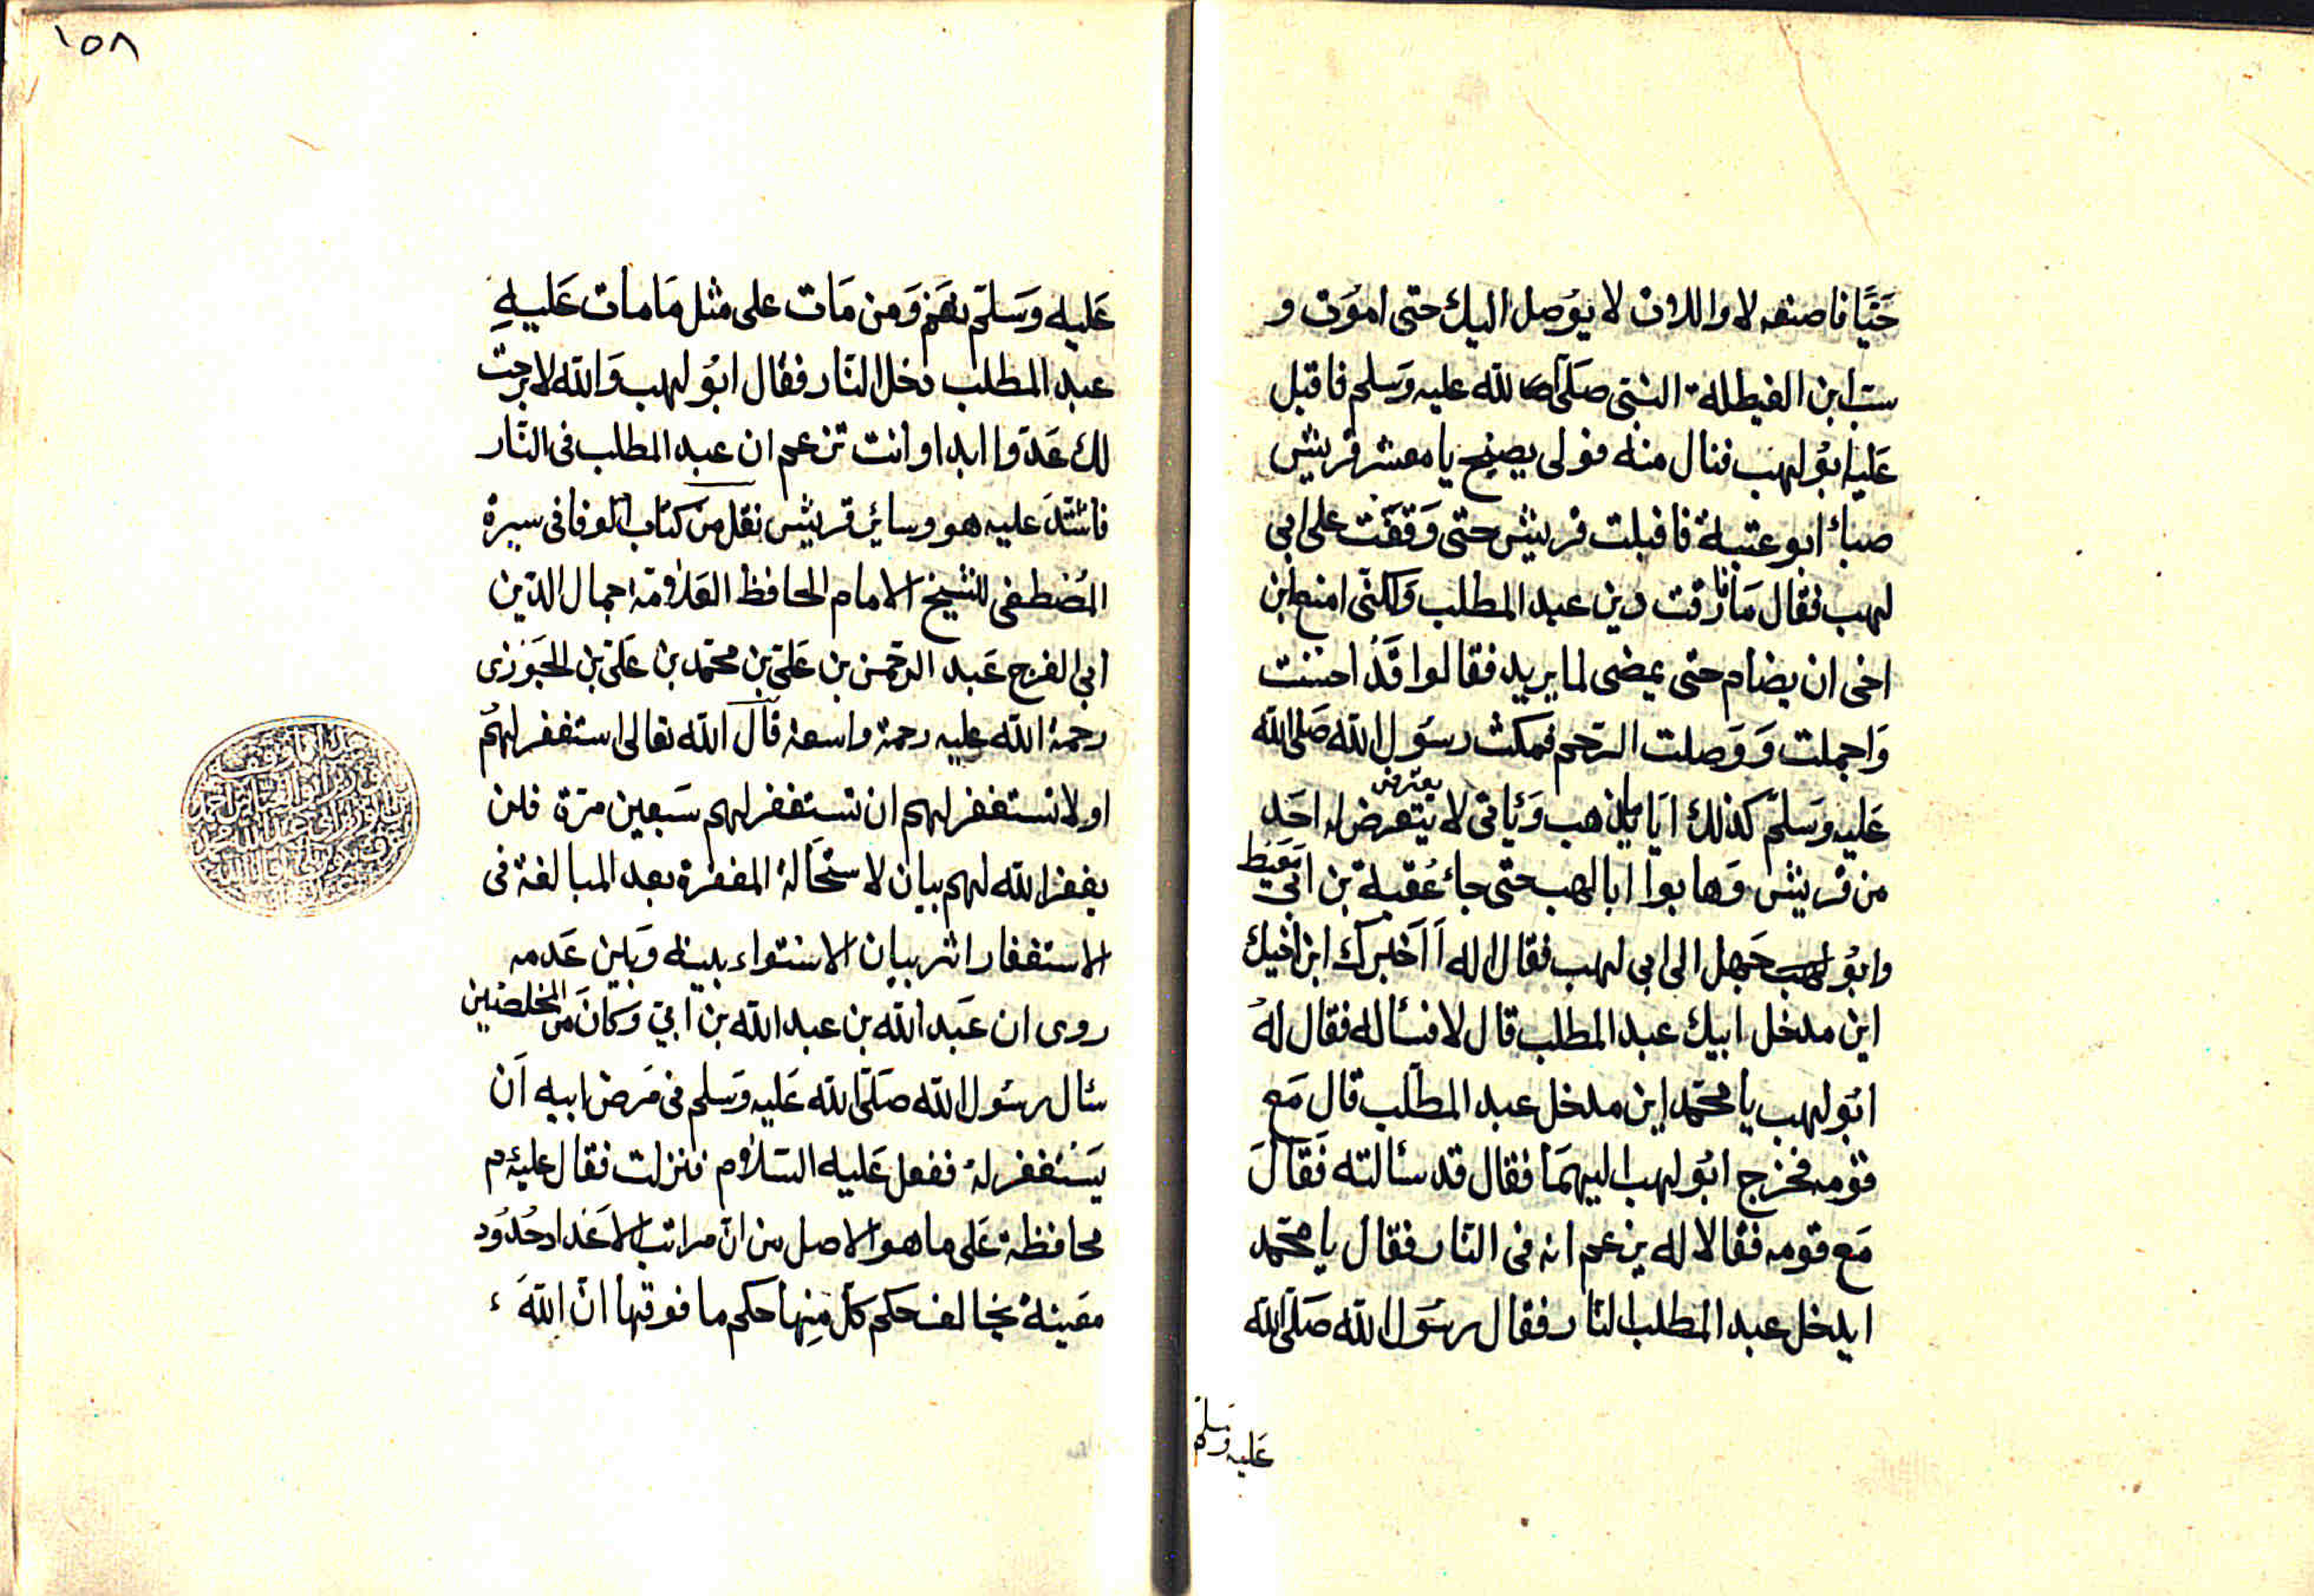 حَيًّا فاصنعه لا واللات لا يوُصل اليك حتى اموُت و
سب ابن الغيطلة النبى صَلّى الله عليه وَسلم فاقبل
عَليه ابوُ لهب فنال منه فولى يصيح يا معشر قريش
صبأ ابو عتبة فاقبلت قريش حتى وَقفَت على ابى
لهب فقال مَا فارقت دين عبد المطلب وَلكنّى امنع ابن
اخى ان يضام حتى يمضى لما يريد فقالوا قَدْ احسنت
وَاجملت وَوَصلت الرّحم فمكث رسوَل الله صَلى الله
عَليه وَسَلّم كذلك ايّاما يذهب وَيأتى لا يتعرض له احَد
يعترض
من قريش وَهابوا ابا لهب حتى جاء عُقبة بن ابى مَعيط
وابوُ لهب جَهل الى ابى لهب فقال له أَاَخبرك ابن اخيك
اين مدخل ابيك عبد المطلب قال لا فسأله فقال لهُ
ابوُ لهب يا محمّد اين مدخل عبد المطّلب قال مَع
قوْمه فخرج ابوُ لهب اليهمَا فقال قد سألته فَقالَ
مَع قومه فقالا له يزعم انه فى النّار فقال يا محمّد
ايدخل عبد المطلب النّار فقال رسُوَل الله صَلّى الله
عَليه وسَلّم
١٥٨
عَليه وَسَلّم نعَم وَمن مَات على مثل مَا مات عَليهِ
عبد المطلب دخل النّار فقال ابوُ لهب وَالله لا برحت
لك عَدوّا ابدا وانت تزعم ان عبد المطلب فى النّار
فاشتدّ عليه هو وسائر قريش نقل من كتاب الوفا فى سيرة
المُصْطفى للشيخ الامام الحافظ العَلاّمة جمال الدّين
ابى الفرج عَبد الرّحمن بن عَلىّ بن محمّد بن عَلىّ بن الجَوْزى
رحمة الله عليه رحمة واسعة قال الله تعالى استغفر لهُم
او لا تستغفر لهم ان تستغفر لهم سَبعين مرّة فلن
يغفر الله لهم بيان لاستحَالة المغفرة بعد المبالغة فى
الاستغفار اثر بيان الاستواء بينه وَبَين عَدمه
روى ان عَبد الله بن عبد الله بن اُبىّ وَكانَ من المخلصين
سأل رسُول الله صَلّى الله عَليه وَسلم فى مَرض ابيه اَن
يَسْتغفر لهُ ففعل عَليه السّلام فنزلت فقال عليه م
محافظة عَلى ما هو الاصل من انّ مراتب الاَعْداد حُدُود
معَينة يخالف حكم كلّ مِنها حكم ما فوقها انّ اللهَ